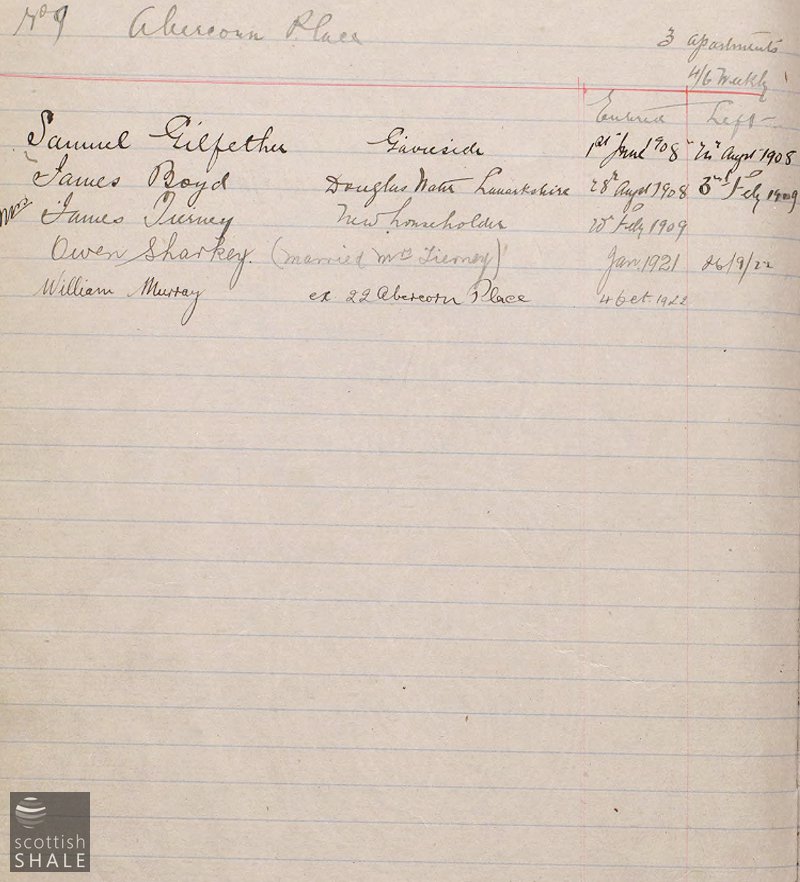 No 9 Abercorn Place
3 apartments
4/6 Weekly
Entered Left
Samuel Gilfether Gavieside 1st June 1908 Augst 1908
James Boyd Douglas Water Lanarkshire 28th Augst 1908 3rd Feby 1909
Mrs James Tierney New householder Feby 1909
Owen Sharkey. (married Mrs Tierney) Jan 1921 26/9/22
William Murray ex 22 Abercorn Place 4 Oct 1922
scottish
SHALE